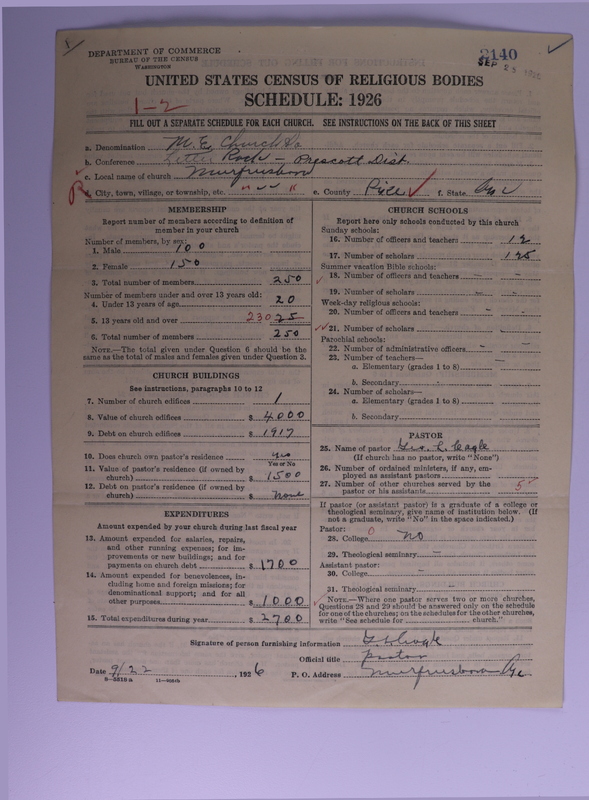 DEPARTMENT OF COMMERCE
BUREAU OF THE CENSUS
WASHINGTON
2140
SEP 25
UNITED STATES CENSUS OF RELIGIOUS BODIES
SCHEDULE: 1926
1-2
FILL OUT A SEPARATE SCHEDULE FOR EACH CHURCH. SEE INSTRUCTIONS ON THE BACK OF THIS SHEET
a. Denomination M. E. Church So
b. Conference Little Rock - Prescott Dist.
c. Local name of church Murfreesboro
d. City, town, village, or township, etc. " " " e. County Pike f. State Arc
MEMBERSHIP
Report number of members according to definition of member in your church
Number of members, by sex:
1. Male 100
2. Female 150
3. Total number of members 250
Number of members under and over 13 years old:
4. Under 13 years of age 20
5. 13 years old and over 230 25
6. Total number of members 250
NOTE.—The total given under Question 6 should be the same as the total of males and females given under Question 3.
CHURCH BUILDINGS
See instructions, paragraphs 10 to 12
7. Number of church edifices 1
8. Value of church edifices $ 4000
9. Debt on church edifices $ 1917
10. Does church own pastor's residence? yes
Yes or No
11. Value of pastor's residence (if owned by church) $ 1500
12. Debt on pastor's residence (if owned by church) $ none
EXPENDITURES
Amount expended by your church during last fiscal year
13. Amount expended for salaries, repairs, and other running expenses; for improvements or new buildings; and for payments on church debt $ 1700
14. Amount expended for benevolences, including home and foreign missions; for denominational support; and for all other purposes $ 1000
15. Total expenditures during year $ 2700
CHURCH SCHOOLS
Report here only schools conducted by this church
Sunday schools:
16. Number of officers and teachers 12
17. Number of scholars 125
Summer vacation Bible schools:
18. Number of officers and teachers -
19. Number of scholars -
Week-day religious schools:
20. Number of officers and teachers -
21. Number of scholars -
Parochial schools:
22. Number of administrative officers -
23. Number of teachers—
a. Elementary (grades 1 to 8)
b. Secondary
24. Number of scholars—
a. Elementary (grades 1 to 8)
b. Secondary
PASTOR
25. Name of pastor Geo. L. Cagle
(If church has no pastor, write "None")
26. Number of ordained ministers, if any, employed as assistant pastors
27. Number of other churches served by the pastor or his assistants 5
If pastor (or assistant pastor) is a graduate of a college or theological seminary, give name of institution below. (If not a graduate, write "No" in the space indicated.)
Pastor:
28. College 0 no
29. Theological seminary -
Assistant pastor:
30. College -
31. Theological seminary -
NOTE.—Where one pastor serves two or more churches, Questions 28 and 29 should be answered only on the schedule for one of the churches; on the schedules for the other churches, write "See schedule for church."
Signature of person furnishing information G L Cagle
Official title pastor
Date 9/22, 1926 P. O. Address Murfreesboro Arc
8-5818 a